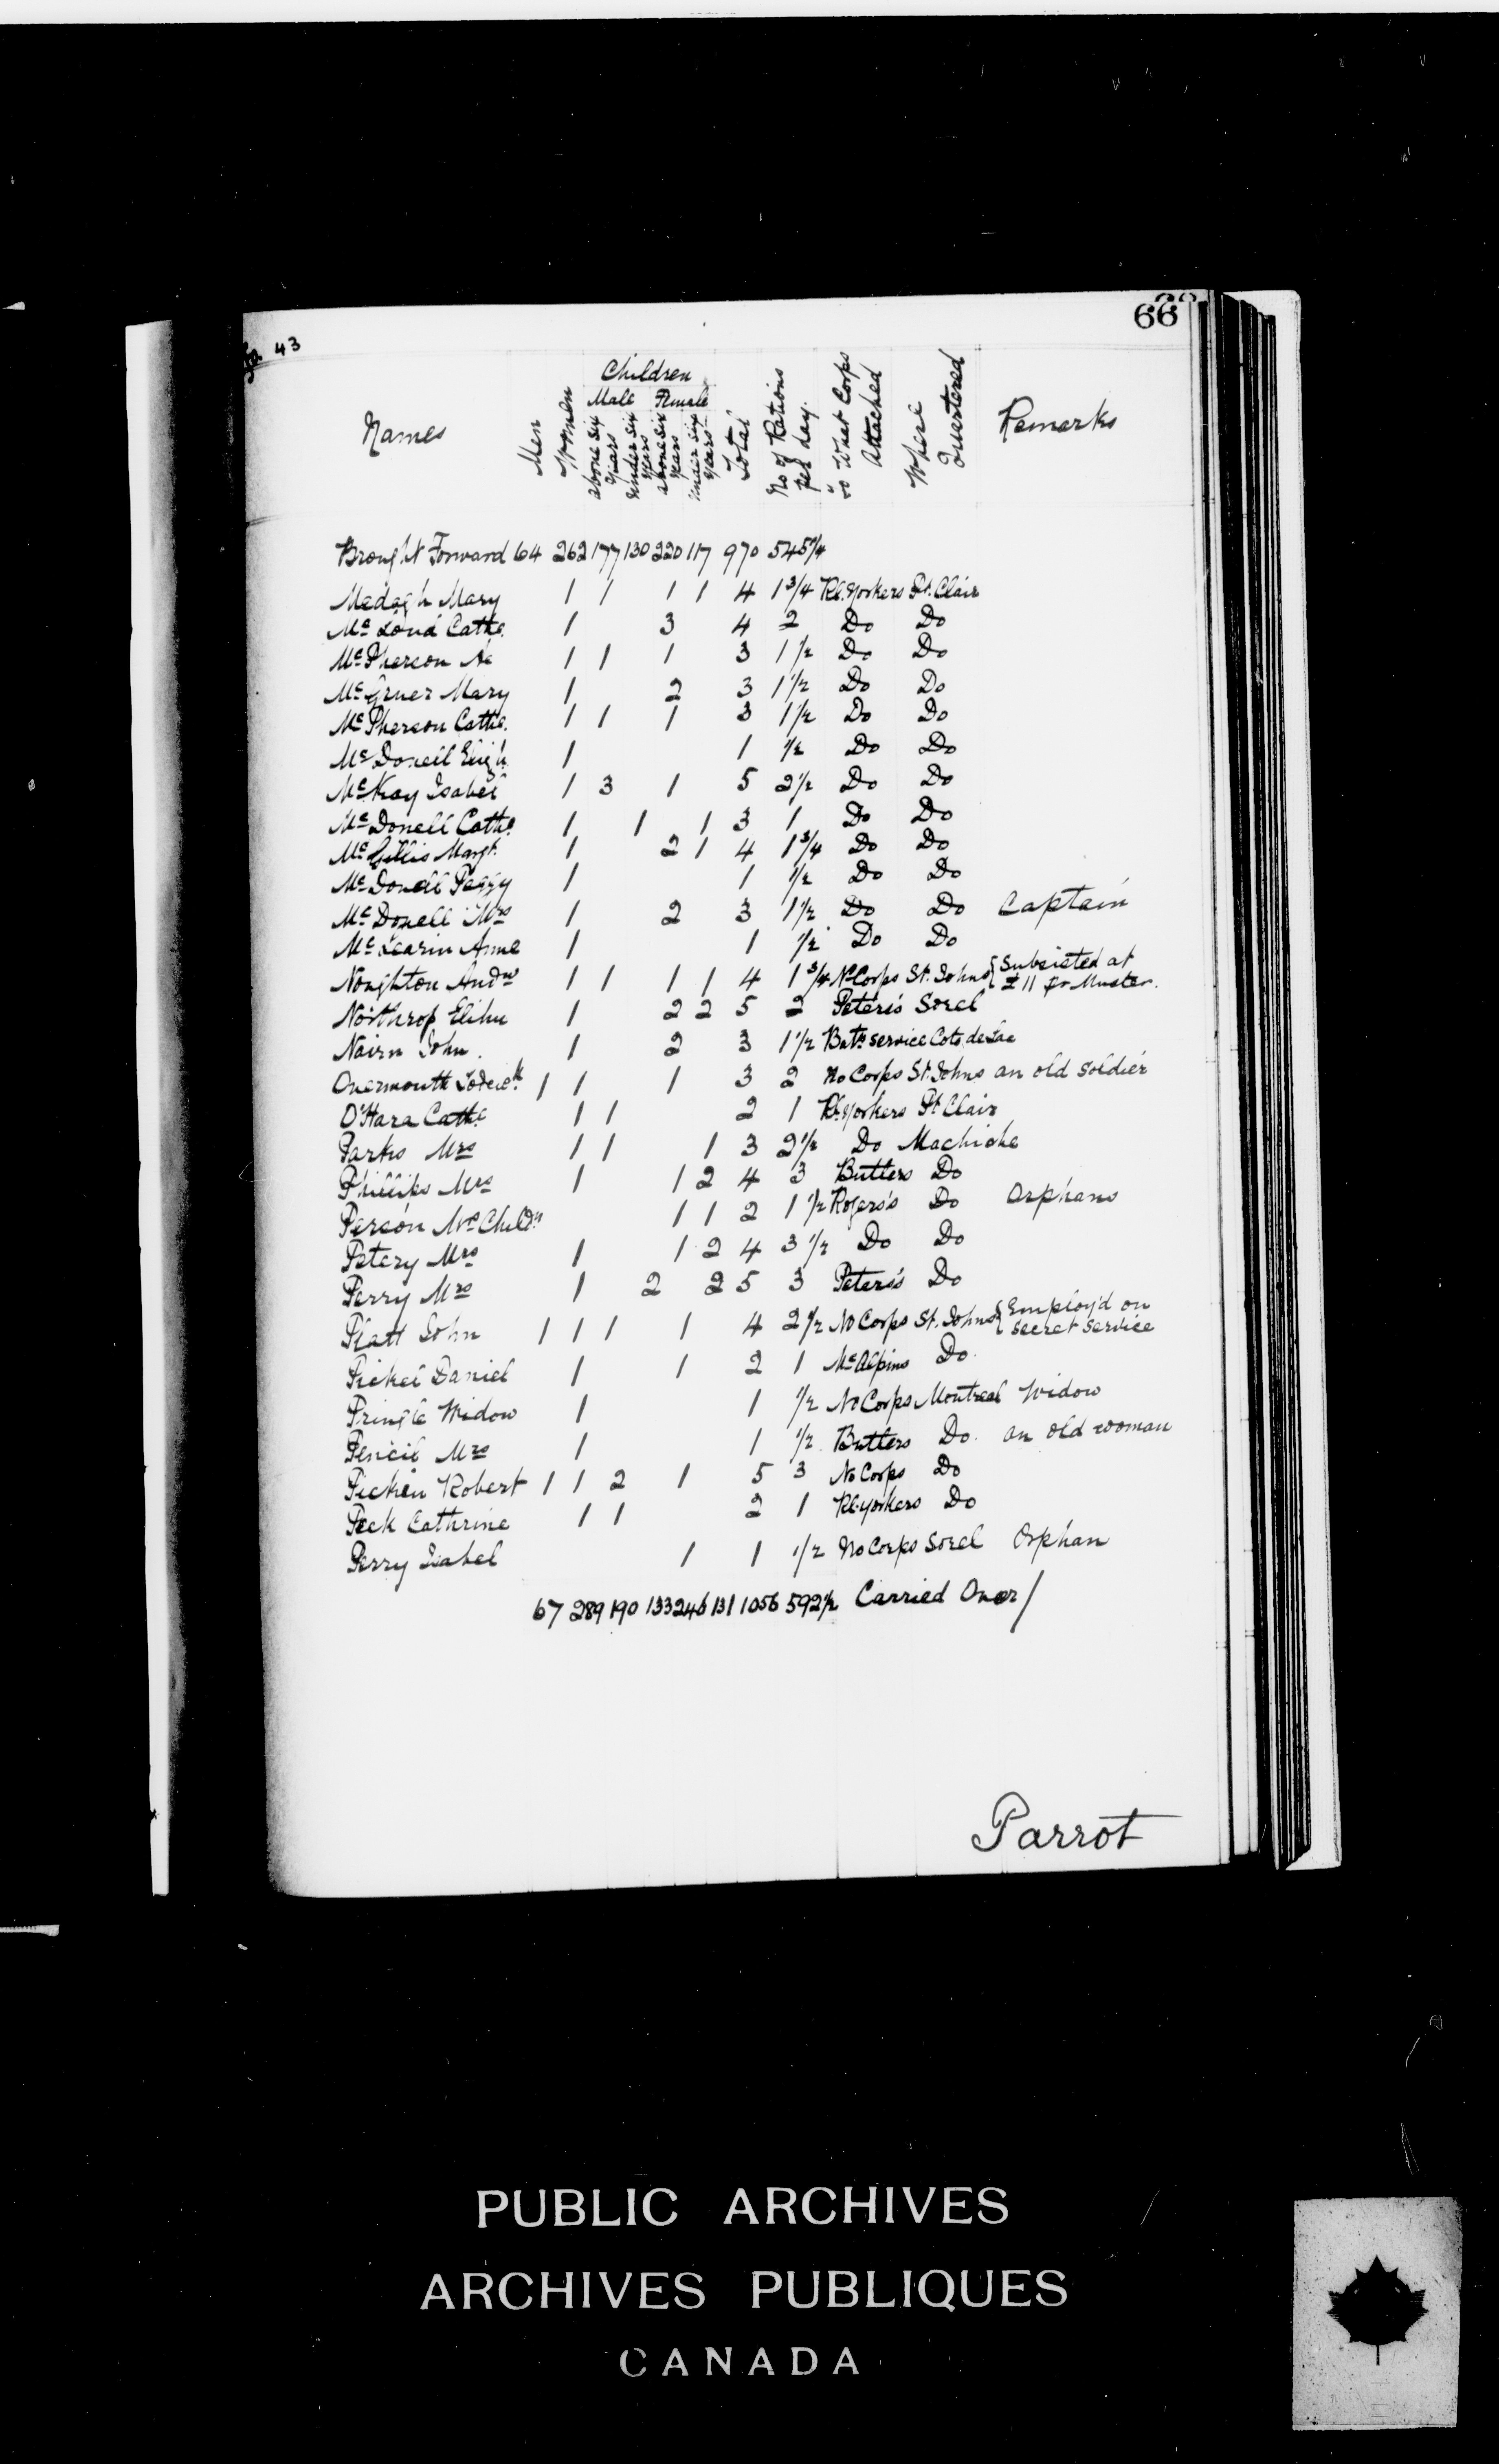 66
43
Names Men Women Children Male above six years under six years Female above six years under six years Total No of Rations per day. To What Corps Attached Where Quartered Remarks
Brought Forward 64 262 177 130 220 117 970 545 3/4
Madagh Mary 1 1 1 1 4 1 3/4 Rl. Yorkers Pt. Clair
Mc Loud Cathe. 1 3 4 2 Do Do
McPherson Ae 1 1 1 3 1 1/2 Do Do
McGruer Mary 1 2 3 1 1/2 Do Do
McPherson Cathe. 1 1 1 3 1 1/2 Do Do
McDonell Eligh 1 1 1/2 Do Do
McKay Isabel 1 3 1 5 2 1/2 Do Do
McDonell Cathe 1 1 1 3 1 Do Do
McGillis Margt. 1 2 1 4 1 3/4 Do Do
McDonell Peggy 1 1 1/2 Do Do
McDonell Mrs 1 2 3 1 1/2 Do Do Captain
McLearin Anne 1 1 1/2 Do Do
Noughton Andw 1 1 1 1 4 1 3/4 No Corps St. Johns { Subsisted at £ 11 pr Muster.
Northrop Elihu 1 2 2 5 2 Peters's Sorel
Nairn John. 1 2 3 1 1/2 Batx service Coto de Lac
Overmouth 1 1 1 3 2 No Corps St. Johns an old soldier
O'Hara Cathe 1 1 2 1 Rl. Yorkers Pt Clair
Parks Mrs 1 1 1 3 2 1/2 Do Machiche
Phillips Mrs 1 1 2 4 3 Butlers Do
Person Mrs Childn 1 1 2 1 1/2 Rogers's Do Orphans
Petery Mrs 1 1 2 4 3 1/2 Do Do
Perry Mrs 1 2 2 5 3 Peters's Do
Platt John 1 1 1 1 4 2 1/2 No Corps St. Johns { Employ'd on secret service
Pickel Daniel 1 1 2 1 McAlpins Do.
Pringle Widow 1 1 1/2 No Corps Montreal Widow
Pencil Mrs 1 1 1/2 Butlers Do. an old woman
Picken Robert 1 1 2 1 5 3 No Corps Do
Peek Cathrine 1 1 2 1 Rl. Yorkers Do
Perry Isabel 1 1 1/2 No Corps Sorel Orphan
67 289 190 133 246 131 1056 592 1/2 Carried Over/
Parrot
PUBLIC ARCHIVES
ARCHIVES PUBLIQUES
CANADA